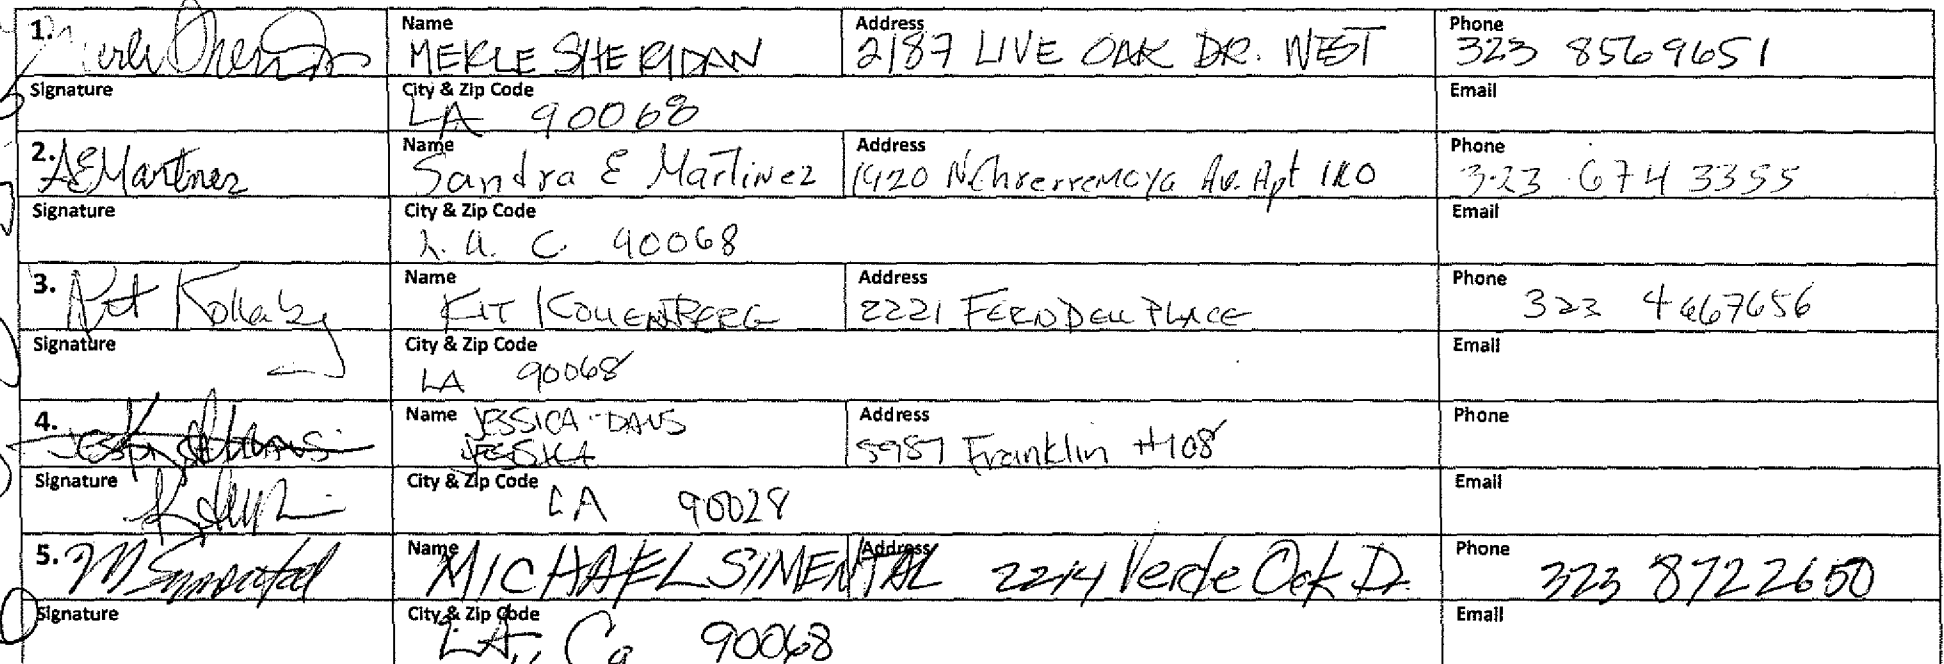 1. Merle Sheridan Name MERLE SHERIDAN Address 2187 LIVE OAK DR. WEST Phone 323 8569651
Signature City & Zip Code LA 90068 Email
2. SEMartinez Name Sandra E Martinez Address 1920 N Chrerremoya Av. Apt 120 Phone 323 674 3355
Signature City & Zip Code L. A. C 90068 Email
3. Kit Name KIT KOLLENBERG Address 2221 FERNDELL PLACE Phone 323 4667656
Signature City & Zip Code LA 90068 Email
4. Name JESSICA DAVIS Address 5987 Franklin #108 Phone
JESSICA
Signature City & Zip Code LA 90028 Email
5. M Simental Name MICHAEL SIMENTAL Address 2214 Verde Oak Dr. Phone 323 8722650
Signature City & Zip Code LA, Ca 90068 Email